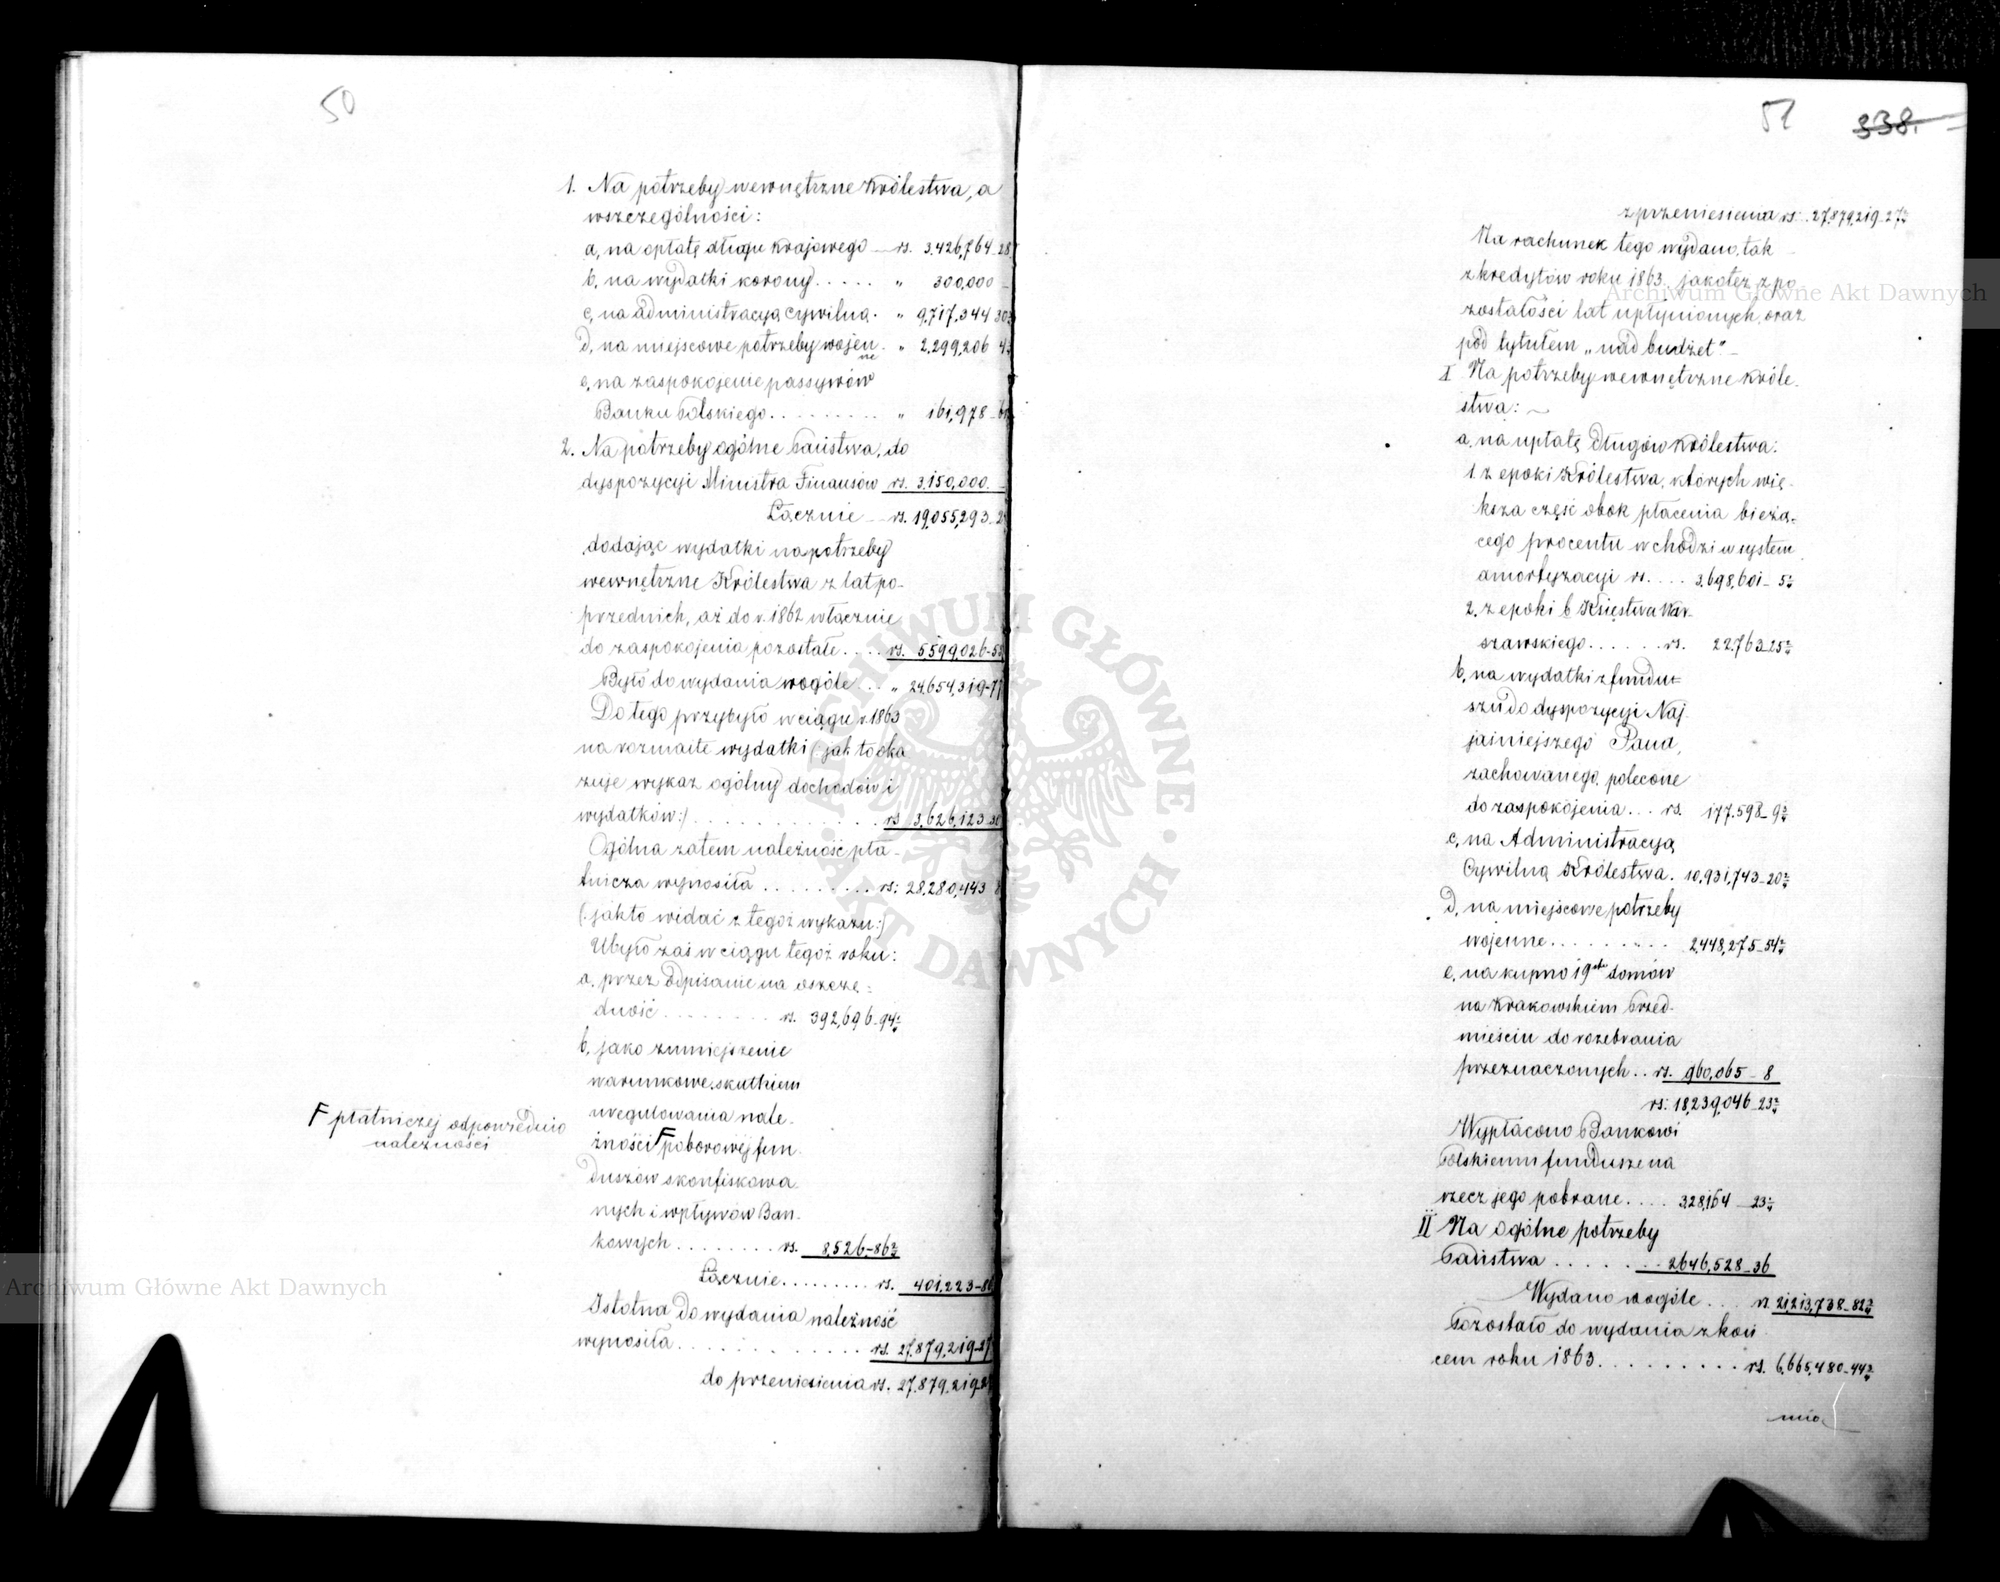 50
1. Na potrzeby wewnętrzne Królestwa, a
wszczególności:
a, na opłatę długu krajowego — rs. 3.426,764_28
b, na wydatki korony..... " 300,000 _
c, na administracyą cywilną. " 9,717,344 30
d, na miejscowe potrzeby wojen
ne " 2,299,206 4
e, na zaspokojenie passywów
Banku Polskiego......... " 161,978_6
2. Na potrzeby ogólne Państwa, do
dyspozycyi Ministra Finansów rs. 3,150,000. _
Łącznie — rs. 19,055,293_2
dodając wydatki na potrzeby
wewnętrzne Królestwa z lat po-
przednich, aż do r. 1862 włącznie
do zaspokojenia pozostałe.... rs. 5,599,026-5
Było do wydania wogóle... " 24,654,319-7
Do tego przybyło w ciągu r. 1863
na rozmaite wydatki (:jak to oka
zuje wykaz ogólny dochodów i
wydatków:)............ rs 3,626,123_30
Ogólna zatem należność pła-
tnicza wynosiła......... rs: 28,280,443 8
(:jak to widać z tegoż wykazu:)
Ubyło zaś w ciągu tegoż roku:
a. przez odpisanie na oszczę=
dność........ rs. 392,696_94½
b, jako zmniejszenie
warunkowe, skutkiem
uregulowania nale-
żności F poborowej fun-
F płatniczej odpowiednio
należności
duszów skonfiskowa-
nych i wpływów Ban-
kowych........ rs. 8,526_86½
Łącznie......... rs. 401,223_8
Istotna do wydania należność
wynosiła............ rs. 27,879,219_27
do przeniesienia rs. 27,879,219_2
51 338.
z przeniesienia rs: 27,879,219_27½
Na rachunek tego wydano, tak
z kredytów roku 1863. jakoteż z po
zostałości lat upłynionych, oraz
pod tytułem „nad budżet" _
I Na potrzeby wewnętrzne Króle-
stwa: ~
a, na upłatę długów Królestwa:
1. z epoki Królestwa, których wię-
ksza część obok płacenia bieżą=
cego procentu wchodzi w system
amortyzacyi rs.... 3,698,601_5½
2. z epoki b Księstwa War-
szawskiego...... rs. 22,763_25½
b, na wydatki z fundu=
szu do dyspozycyi Naj-
jaśniejszego Pana,
zachowanego, polecone
do zaspokojenia... rs. 177.598_9½
c, na Administracyą
Cywilną Królestwa. 10,931,743_20½
d, na miejscowe potrzeby
wojenne......... 2,448,275_54½
e, na kupno 19stu domów
na Krakowskiem Przed-
mieściu do rozebrania
przeznaczonych.. rs. 960,065_8
rs: 18,239,046_23½
Wypłacono Bankowi
Polskiemu fundusze na
rzecz jego pobrane.... 328,164_23½
II Na ogólne potrzeby
Państwa....... 2,646,528_36
Wydano wogóle... rs 21,213,738_82½
Pozostało do wydania z koń
cem roku 1863......... rs. 6,665,480_44½
mia
Archiwum Główne Akt Dawnych
Archiwum Główne Akt Dawnych
ARCHIWUM GŁÓWNE · AKT DAWNYCH ·